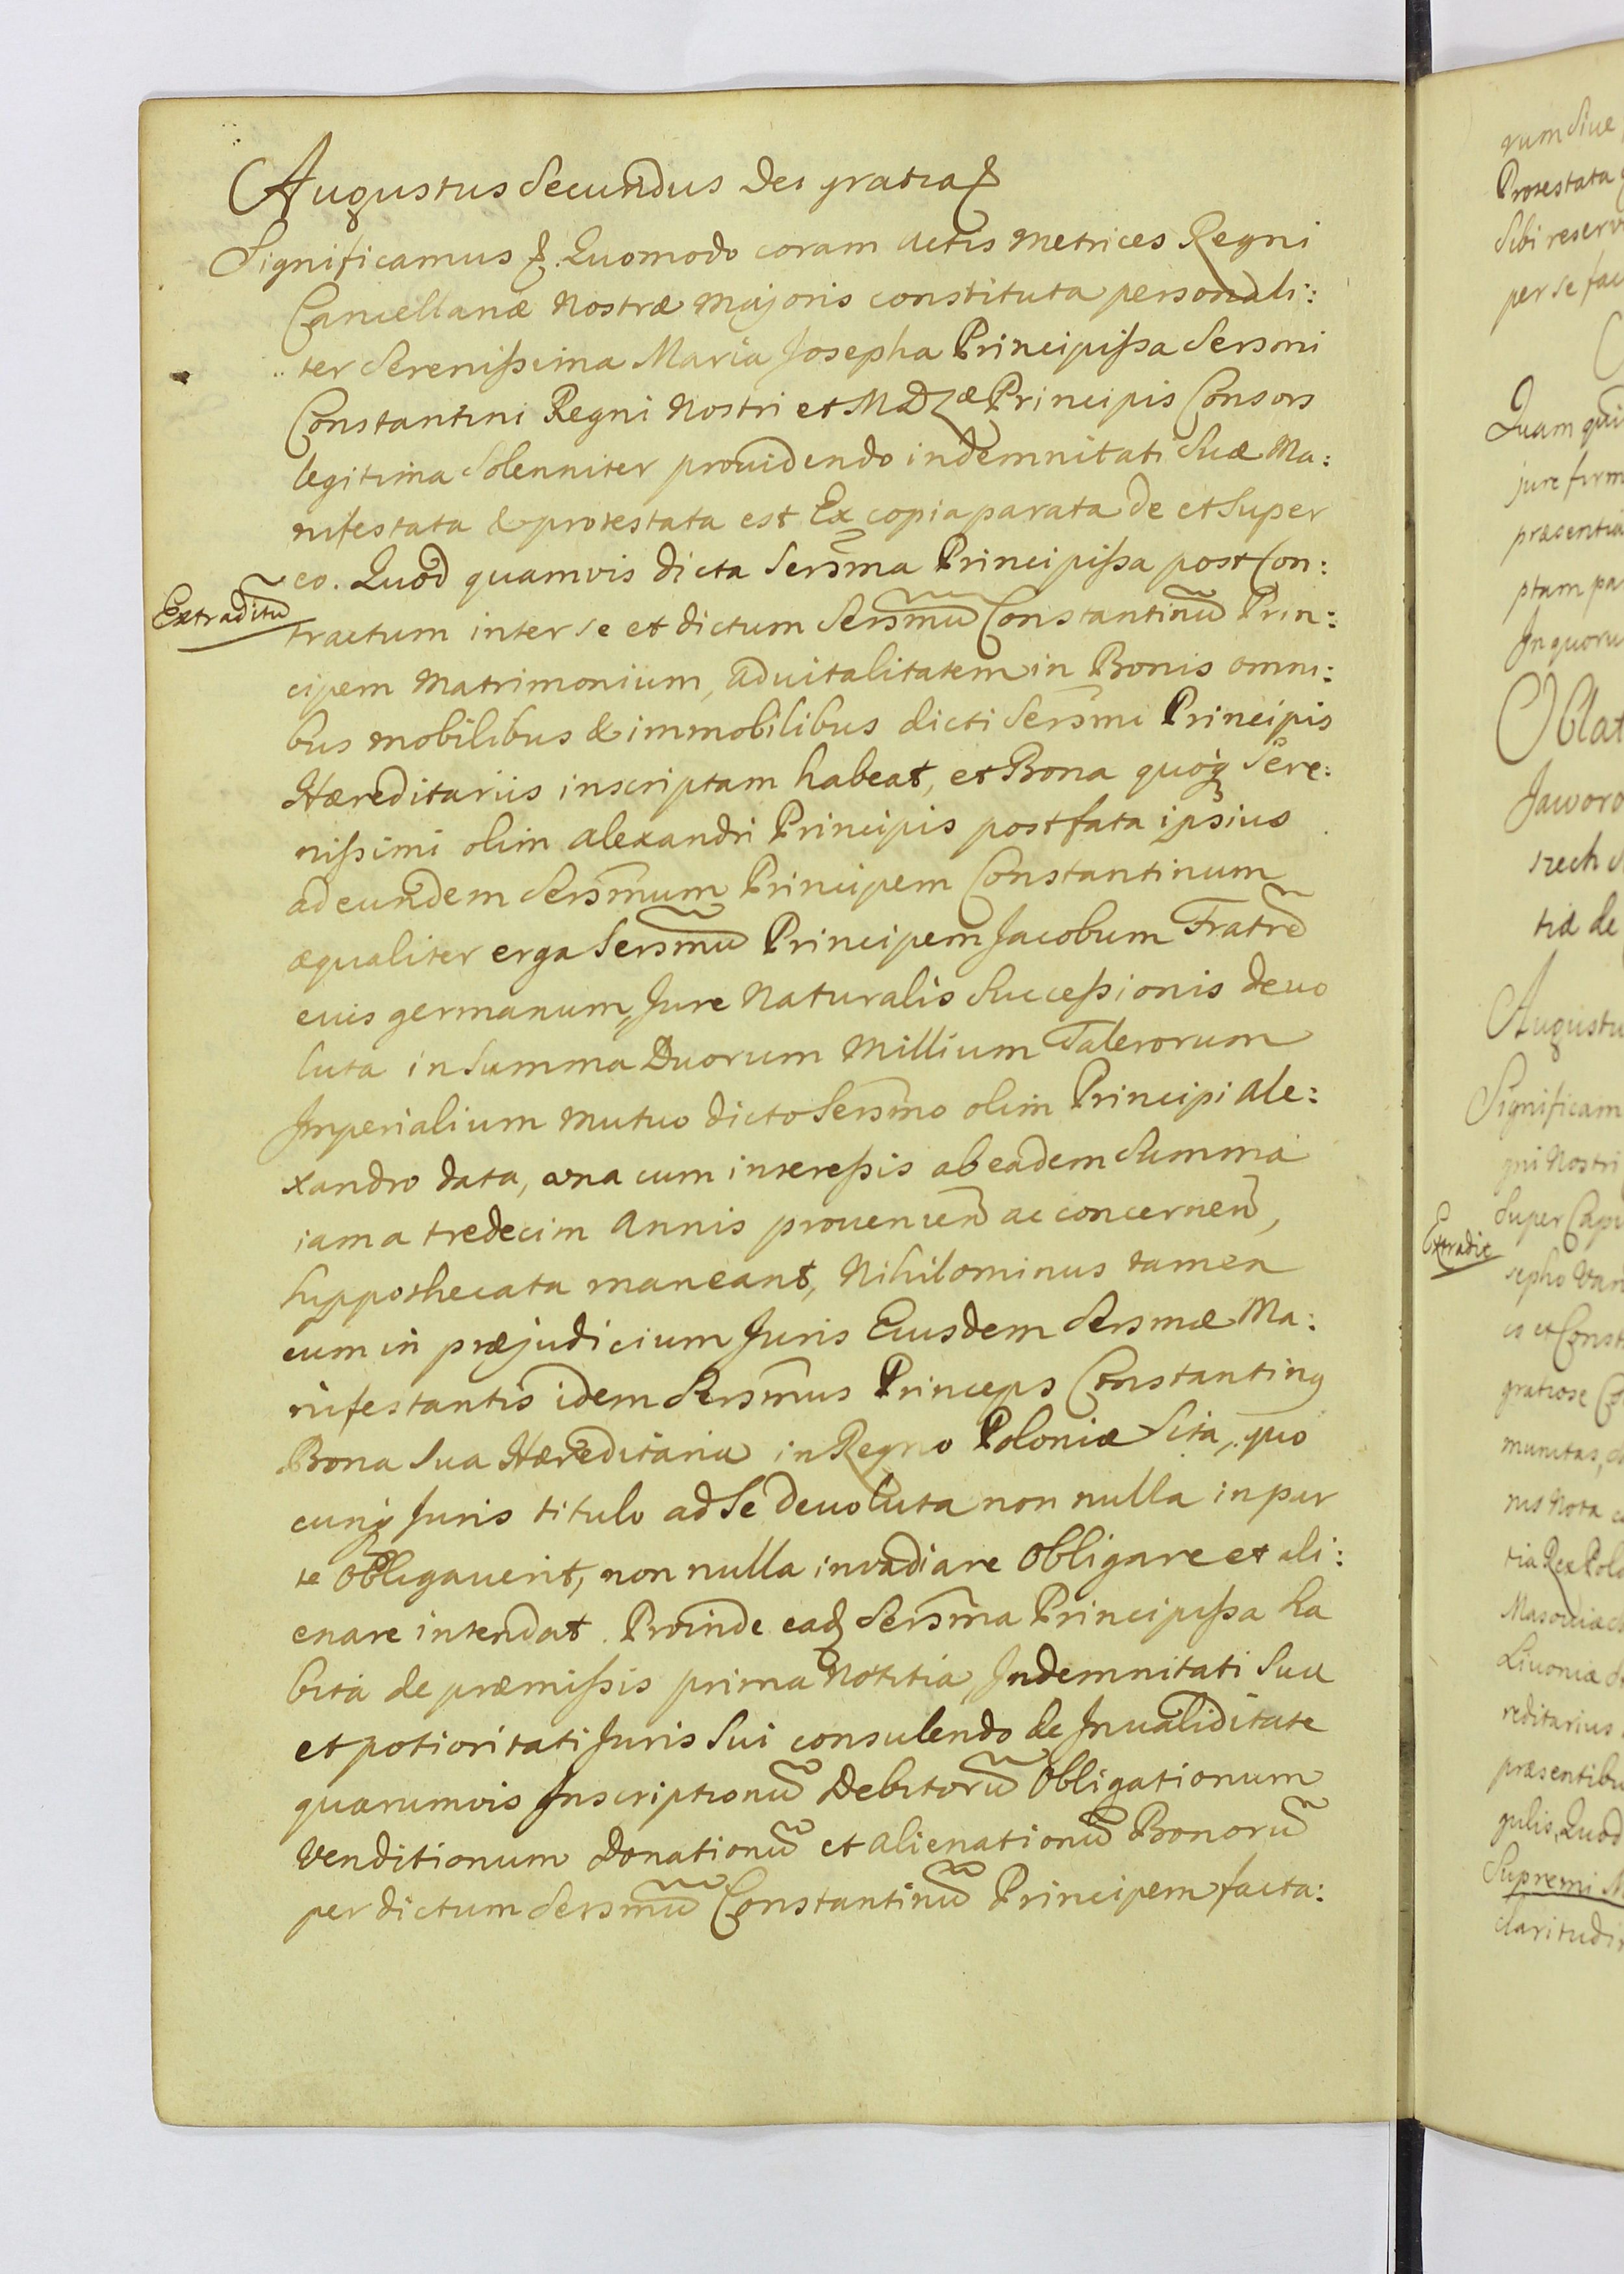 Augustus Secundus Dei gratia
Significamus Quomodo coram Actis Metrices Regni
Cancellariæ Nostræ Majoris constituta personali:
ter Serenissima Maria Josepha Principissa Sersmi
Constantini Regni Nostri et MDLæ Principis Consors
legitima Solenniter providendo indemnitati Suæ Ma:
nifestata & protestata est Ex copia parata de et Super
eo. Quod quamvis dicta Sersma Principissa post Con:
Extraditũ
tractum inter se et dictum Sersmũ Constantinũ Prin:
cipem Matrimonium, advitalitatem in Bonis omni:
bus mobilibus & immobilibus dicti Sersmi Principis
Hæreditariis inscriptam habeat, et Bona quoq Sere:
nissimi olim Alexandri Principis post fata ipsius
ad eundem Sersmum Principem Constantinum
æqualiter erga Sersmũ Principem Jacobum Fratrẽ
eius germanum, Jure Naturalis Successionis devo
luta in Summa Duorum Millium Talerorum
Imperialium Mutuo dicto Sersmo olim Principi Ale:
xandro data, una cum interessis ab eadem Summa
iam a tredecim Annis provenien ac concernen,
hyppothecata maneant, Nihilominus tamen
cum in præjudicium Juris Eiusdem Sersmæ Ma:
nifestantis idem Sersmus Princeps Constantinq
Bona Sua Hæreditaria in Regno Poloniæ Sita, quo
cunq Juris titulo ad Se devoluta non nulla in par
te Obligaverit, non nulla invadiare Obligare et ali:
enare intendat. Proinde eadq Sersma Principissa ha
bita de præmissis prima Notitia, Indemnitati Suæ
et potioritati Juris Sui consulendo de Invaliditate
quarumvis Inscriptionũ Debitorũ Obligationum
Venditionum Donationũ et Alienationũ Bonorũ
per dictum Sersmũ Constantinũ Principem facta:
rum Sive
Protestata
Sibi reserv
per se fac
Quam qui
jure firm
præsentia
ptam pa
In quoru
Oblat
Jaworo
rzech
tiæ de
Augustu
Significam
gni Nostri
Super Cap
Extradit
sepho Van
is et Const
gratiose Co
munitas,
nis Nota
tia Rex Polo
Masoviæ
Livoniæ
reditarius
præsentibu
gulis, Quod
Supremi M
claritudin